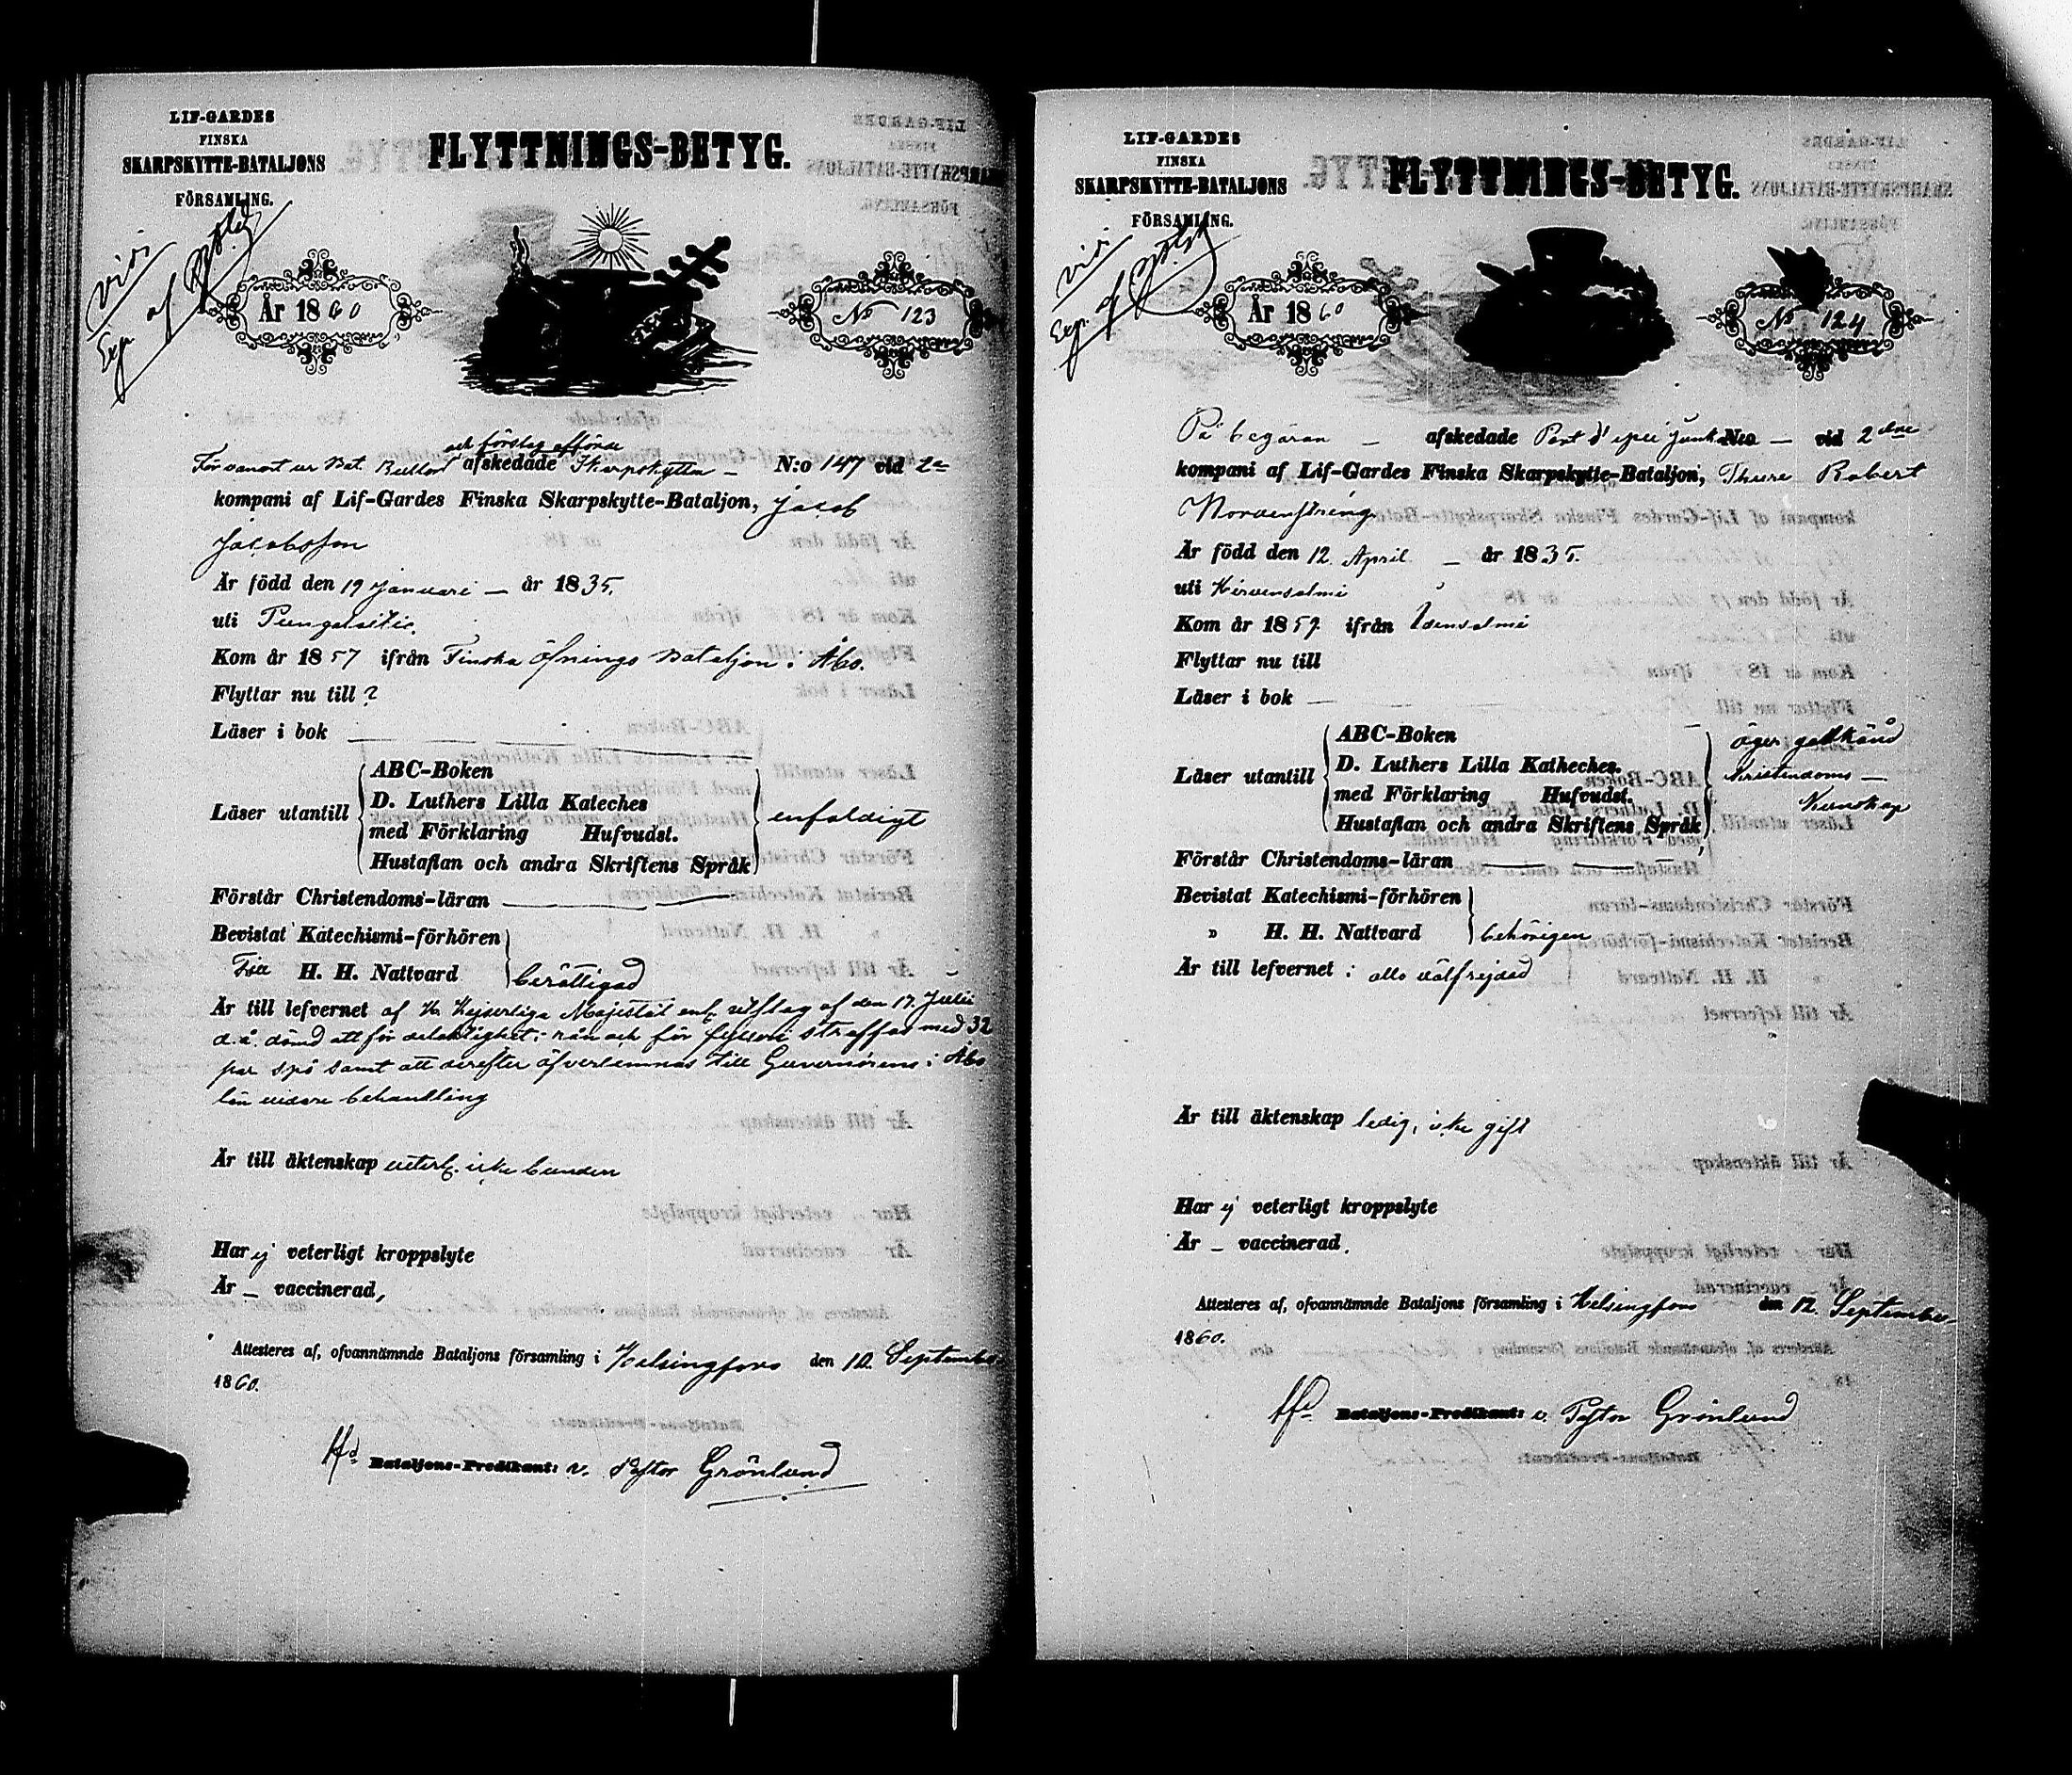 LIF-GARDES
FINSKA
SKARPSKYTTE-BATALJONS
FÖRSAMLING.
FLYTTNINGS-BETYG.
År 1860
No 123
afskedade Skarpskytten – N:o 147 vid 2a
kompani af Lif-Gardes Finska Skarpskytte-Bataljon, Jacob
Jacobsson
Är född den 19 Januari – år 1835.
uti Pungalaitio.
Kom år 1857 ifrån Finska öfnings Bataljon i Åbo.
Flyttar nu till ?
Läser i bok
Läser utantill
ABC-Boken
D. Luthers Lilla Kateches
med Förklaring Hufvudst.
Hustaflan och andra Skriftens Språk
enfaldigt
Förstår Christendoms-läran
Bevistat Katechismi-förhören
Till H. H. Nattvard
berättigad
Är till lefvernet af H. Kejserliga Majestät enl. utslag af den 17. Julii
d.å. dömd att för delaktighet i rån och för fylleri straffas med 32
par spö samt att derefter öfverlemnas till Guvernörens i Åbo
län vidare behandling
Är till äktenskap veterl. icke bunden
Har ej veterligt kroppslyte
Är – vaccinerad,
Attesteres af, ofvannämnde Bataljons församling i Helsingfors den 12 September
1860.
Bataljons-Predikant: v. Pastor Grönlund
LIF-GARDES
FINSKA
SKARPSKYTTE-BATALJONS
FÖRSAMLING.
FLYTTNINGS-BETYG.
År 1860
No 124
På begäran – afskedade Port d'épée Junk. N:o – vid 2dra
kompani af Lif-Gardes Finska Skarpskytte-Bataljon, Thure Robert
Nordenstreng
Är född den 12. April – år 1835.
uti Hirvensalmi
Kom år 1857 ifrån Idensalmi
Flyttar nu till
Läser i bok –
Läser utantill
ABC-Boken
D. Luthers Lilla Katheches.
med Förklaring Hufvudst.
Hustaflan och andra Skriftens Språk
äger godkänd
Kristendoms –
Kunskap
Förstår Christendoms-läran
Bevistat Katechismi-förhören
» H. H. Nattvard
behörigen
Är till lefvernet : allo välfrejdad
Är till äktenskap ledig, icke gift
Har ej veterligt kroppslyte
Är – vaccinerad.
Attesteres af, ofvannämnde Bataljons församling i Helsingfors den 12. September
1860.
Bataljons-Predikant: v. Pastor Grönlund